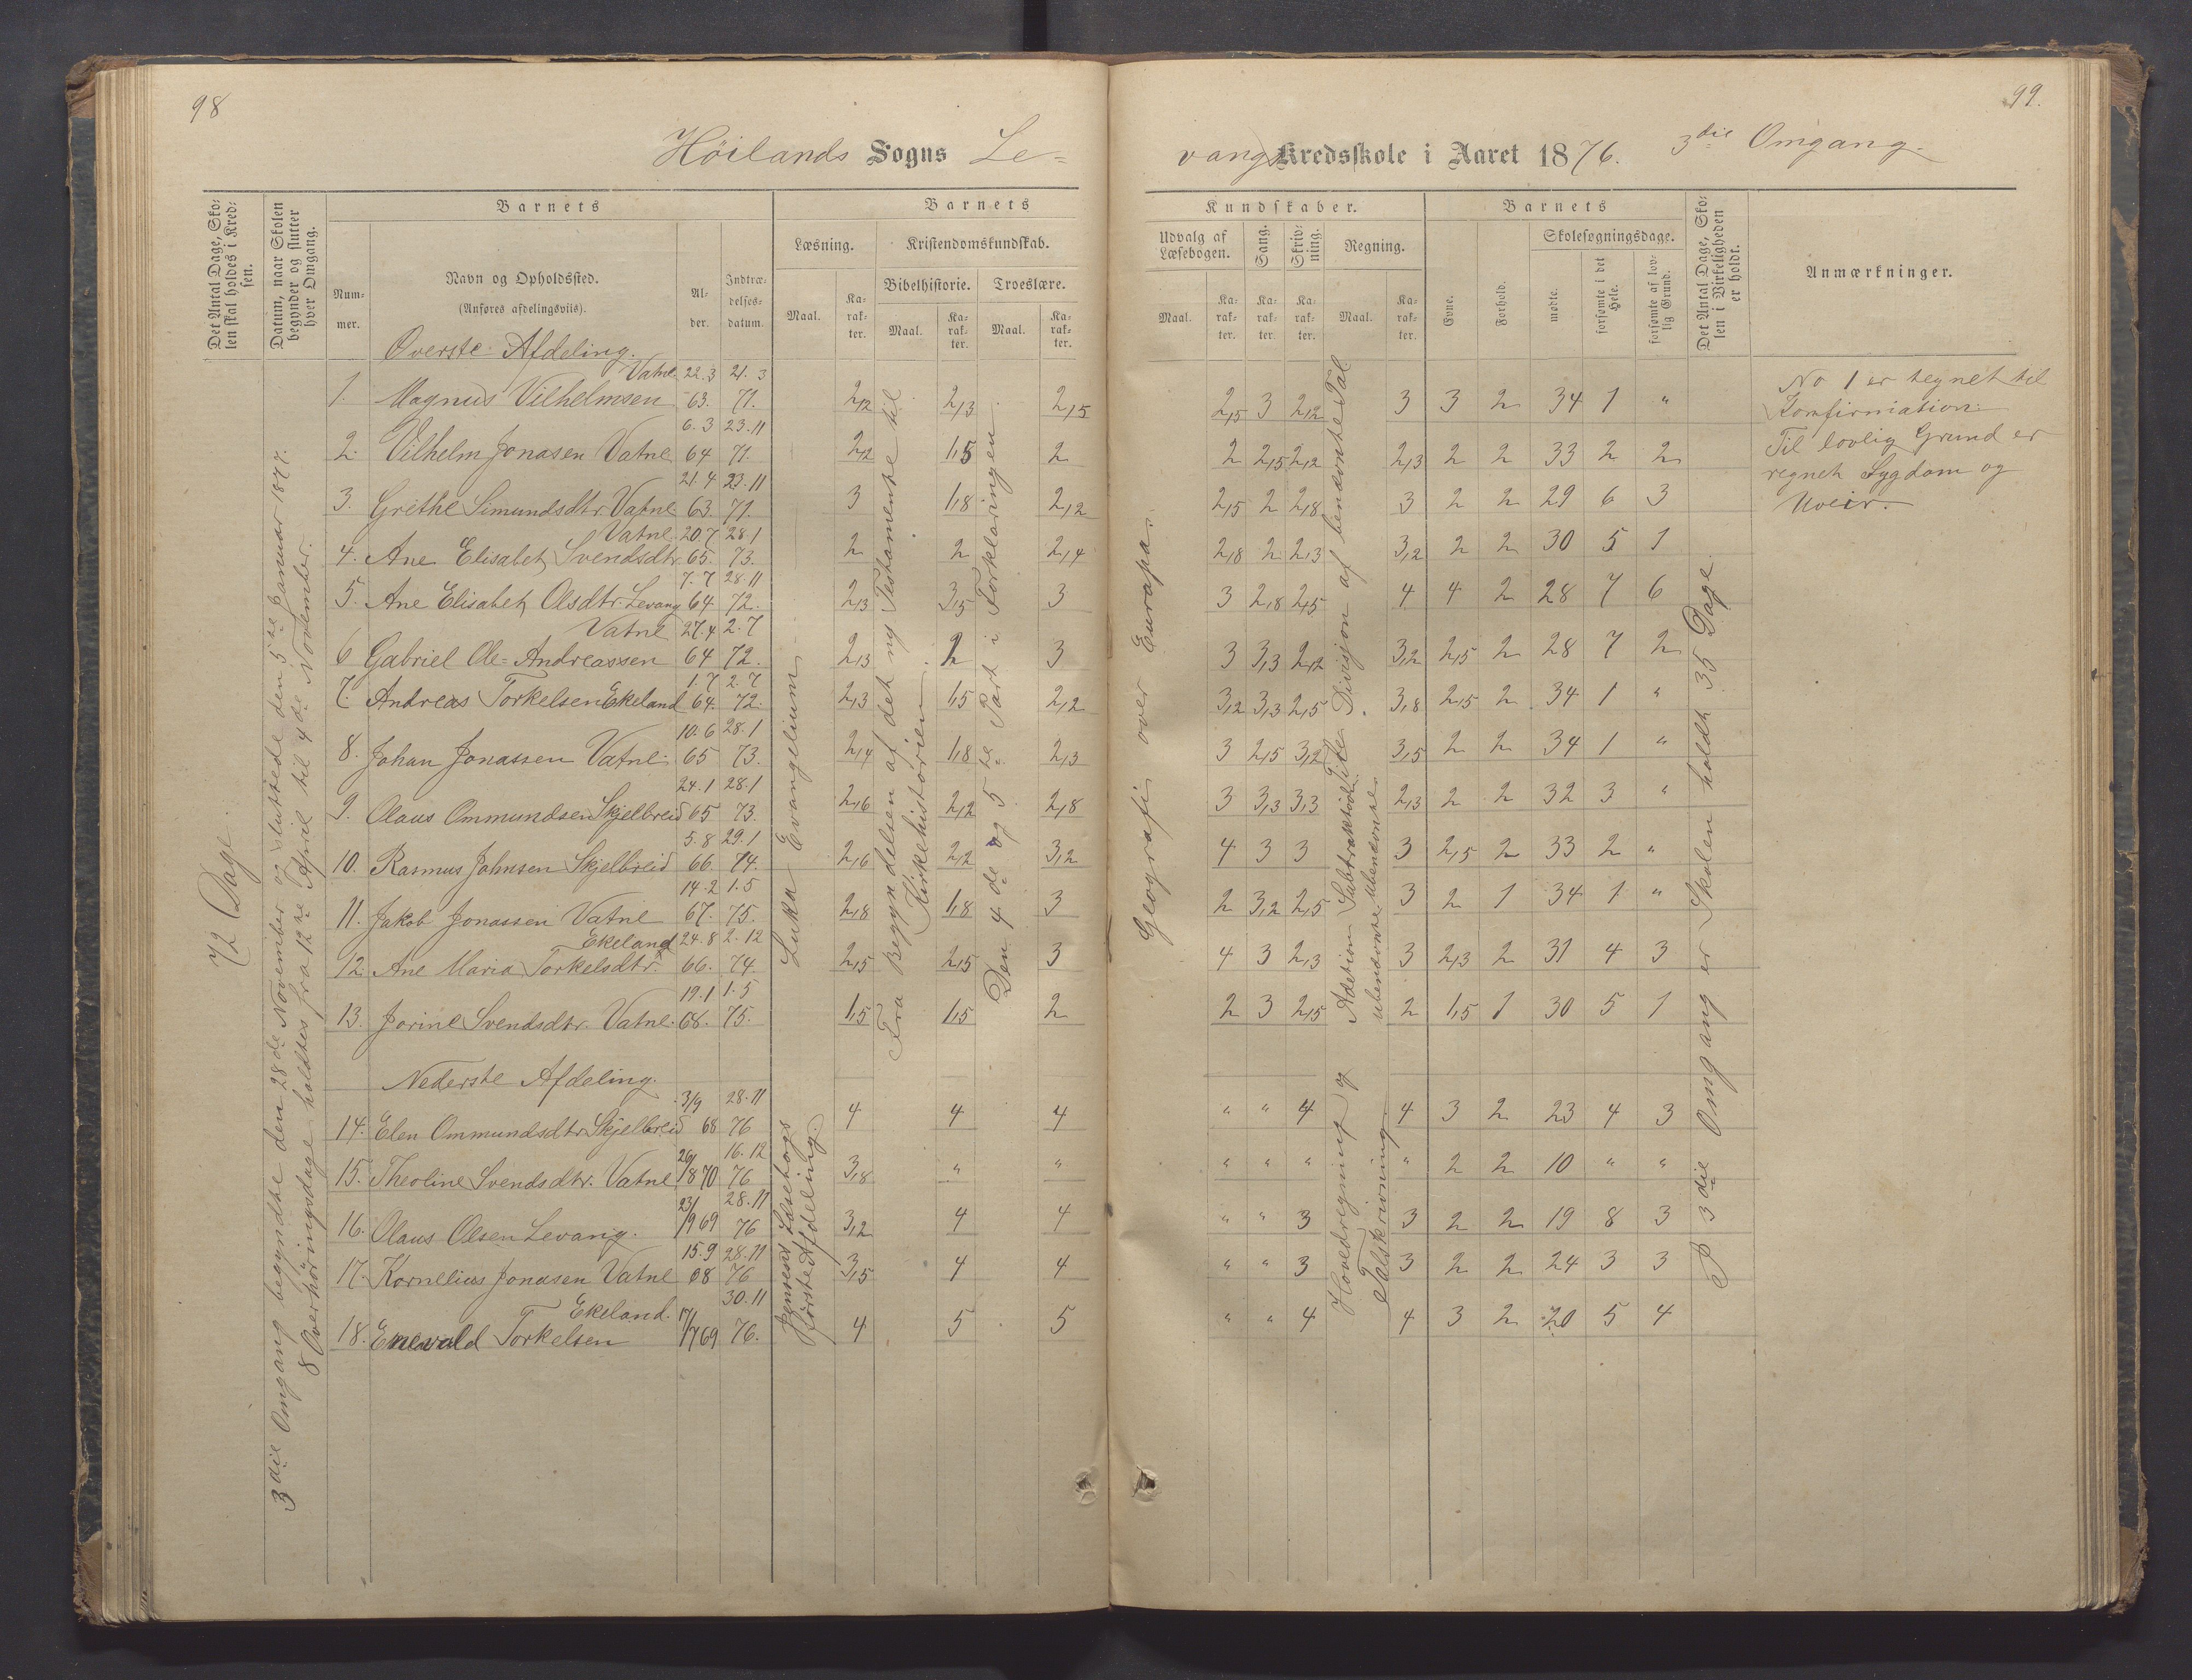 98
Höilands Sogns Le=
Det Antal Dage, Skolen skal holdes i Kredsen.
Datum, naar Skolen begynder og slutter hver Omgang.
Barnets
Nummer.
Navn og Opholdssted.
(Anføres afdelingsviis).
Alder.
Indtrædelsesdatum.
Barnets
Læsning.
Maal.
Karakter.
Kristendomskundskab.
Bibelhistorie.
Maal.
Karakter.
Troeslære.
Maal.
Karakter.
72 Dage.
3die Omgang begyndte den 28de November og sluttede den 5te Januar 1877.
8 Overhøringsdage holdtes fra 12te April til 4de November.
Luka Evangelium
Fra Begyndelsen af det ny Testamente til
Kirkehistorien
Den 4de og 5te Part i Forklaringen
Øverste Afdeling.
1. Magnus Vilhelmsen Vatne 22.3 63. 21.3 71. 2,12 2,13 2,15
2. Vilhelm Jonasen Vatne 6.3 64 23.11 71. 2,12 1,5 2
3. Grethe Simundsdtr. Vatne 21.4 63. 23.11 71. 3 1,8 2,12
4. Ane Elisabet Svendsdtr. Vatne 20.7 65. 28.1 73. 2 2 2,4
5. Ane Elisabet Olsdtr. Levang 7.7 64. 28.11 72. 2,3 3,5 3
6 Gabriel Ole=Andreassen Vatne 27.4 64 2.7 72. 2,3 2 3
7. Andreas Torkelsen Ekeland 1.7 64. 2.7 72. 2,3 1,5 2,2
8. Johan Jonassen Vatne 10.6 65 28.1 73. 2,4 1,8 2,3
9. Olaus Ommundsen Skjelbreid 24.1 65 28.1 73. 2,6 2,2 2,8
10. Rasmus Johnsen Skjelbreid 5.8 66 29.1 74. 2,6 2,2 3,2
11. Jakob Jonassen Vatne 14.2 67. 1.5 75. 2,8 1,8 3
12. Ane Maria Torkelsdtr. Ekeland 24.8 66. 2.12 74. 2,5 2,5 3
13. Jorine Svendsdtr. Vatne 19.1 68. 1.5 75. 1,5 1,5 2
Nederste Afdeling.
Jensens Læsebogs
første Afdeling.
14. Elen Ommundsdtr. Skjelbreid 3/9 68 28.11 76 4 4 4
15. Theoline Svendsdtr. Vatne 1870 16.12 76 3,8 " "
16. Olaus Olsen Levang. 69 28.11 76 3,2 4 4
17. Kornelius Jonasen Vatne 15.9 68 28.11 76 3,5 4 4
18. Enevald Torkelsen Ekeland. 69 30.11 76. 4 5 5
99.
vangs Kredsskole i Aaret 1876. 3die Omgang.
Kundskaber.
Udvalg af Læsebogen.
Maal.
Karakter.
Sang.
Karakter.
Skrivning.
Karakter.
Regning.
Maal.
Karakter.
Barnets
Evne.
Forhold.
Skolesøgningsdage.
mødte.
forsømte i det Hele.
forsømte af lovlig Grund.
Det Antal Dage, Skolen i Virkeligheden er holdt.
Anmærkninger.
Geografi over Europa
Addition Subtraktion Divisjon af benævnte Tal
Hovedregning og
Talskrivning
I 3die Omgang er Skolen holdt 35 Dage
2,15 3 2,12 3 3 2 34 1 "
2 2,15 2,12 2,3 2 2 33 2 2
2,15 2 2,8 3 2 2 29 6 3
2,8 2 2,3 3,2 2 2 30 5 1
3 2,8 2,5 4 4 2 28 7 6
3 3,3 2,12 3,2 2,5 2 28 7 2
3,2 3,3 2,5 3,8 2,5 2 34 1 "
3 2,5 3,2 3,5 2 2 34 1 "
3 3,3 3,3 2,3 2 2 32 3 "
4 3 3 3 2,5 2 33 2 "
2 3,2 2,5 3 2 1 34 1 "
4 3 2,3 3 2,3 2 31 4 3
2 3 2,5 2 1,5 1 30 5 1
" " 4 4 3 2 23 4 3
" " " " 2 2 10 " "
" " 3 3 2 2 19 8 3
" " 3 3 2 2 24 3 3
" " 4 4 3 2 20 5 4
No 1 er tegnet til
Konfirmation.
Til lovlig Grund er
regnet Sygdom og
Uveir.